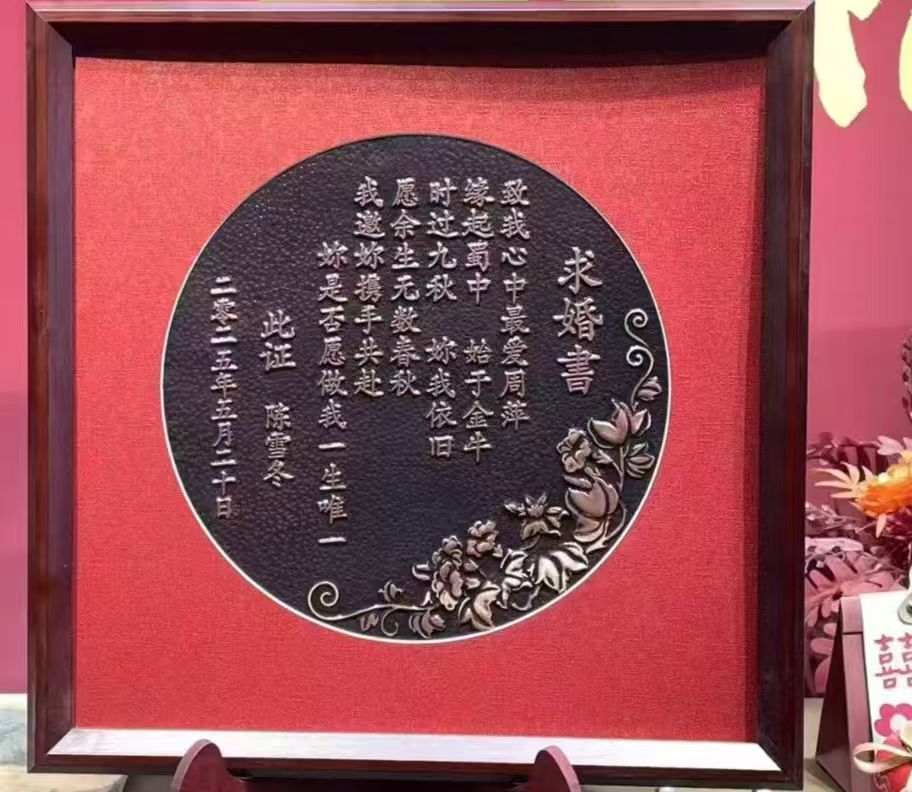 求婚書
致我心中最爱周萍
缘起蜀中 始于金牛
时过九秋 妳我依旧
愿余生无数春秋
我邀妳携手共赴
妳是否愿做我一生唯一
此证 陈雪冬
二零二五年五月二十日
囍